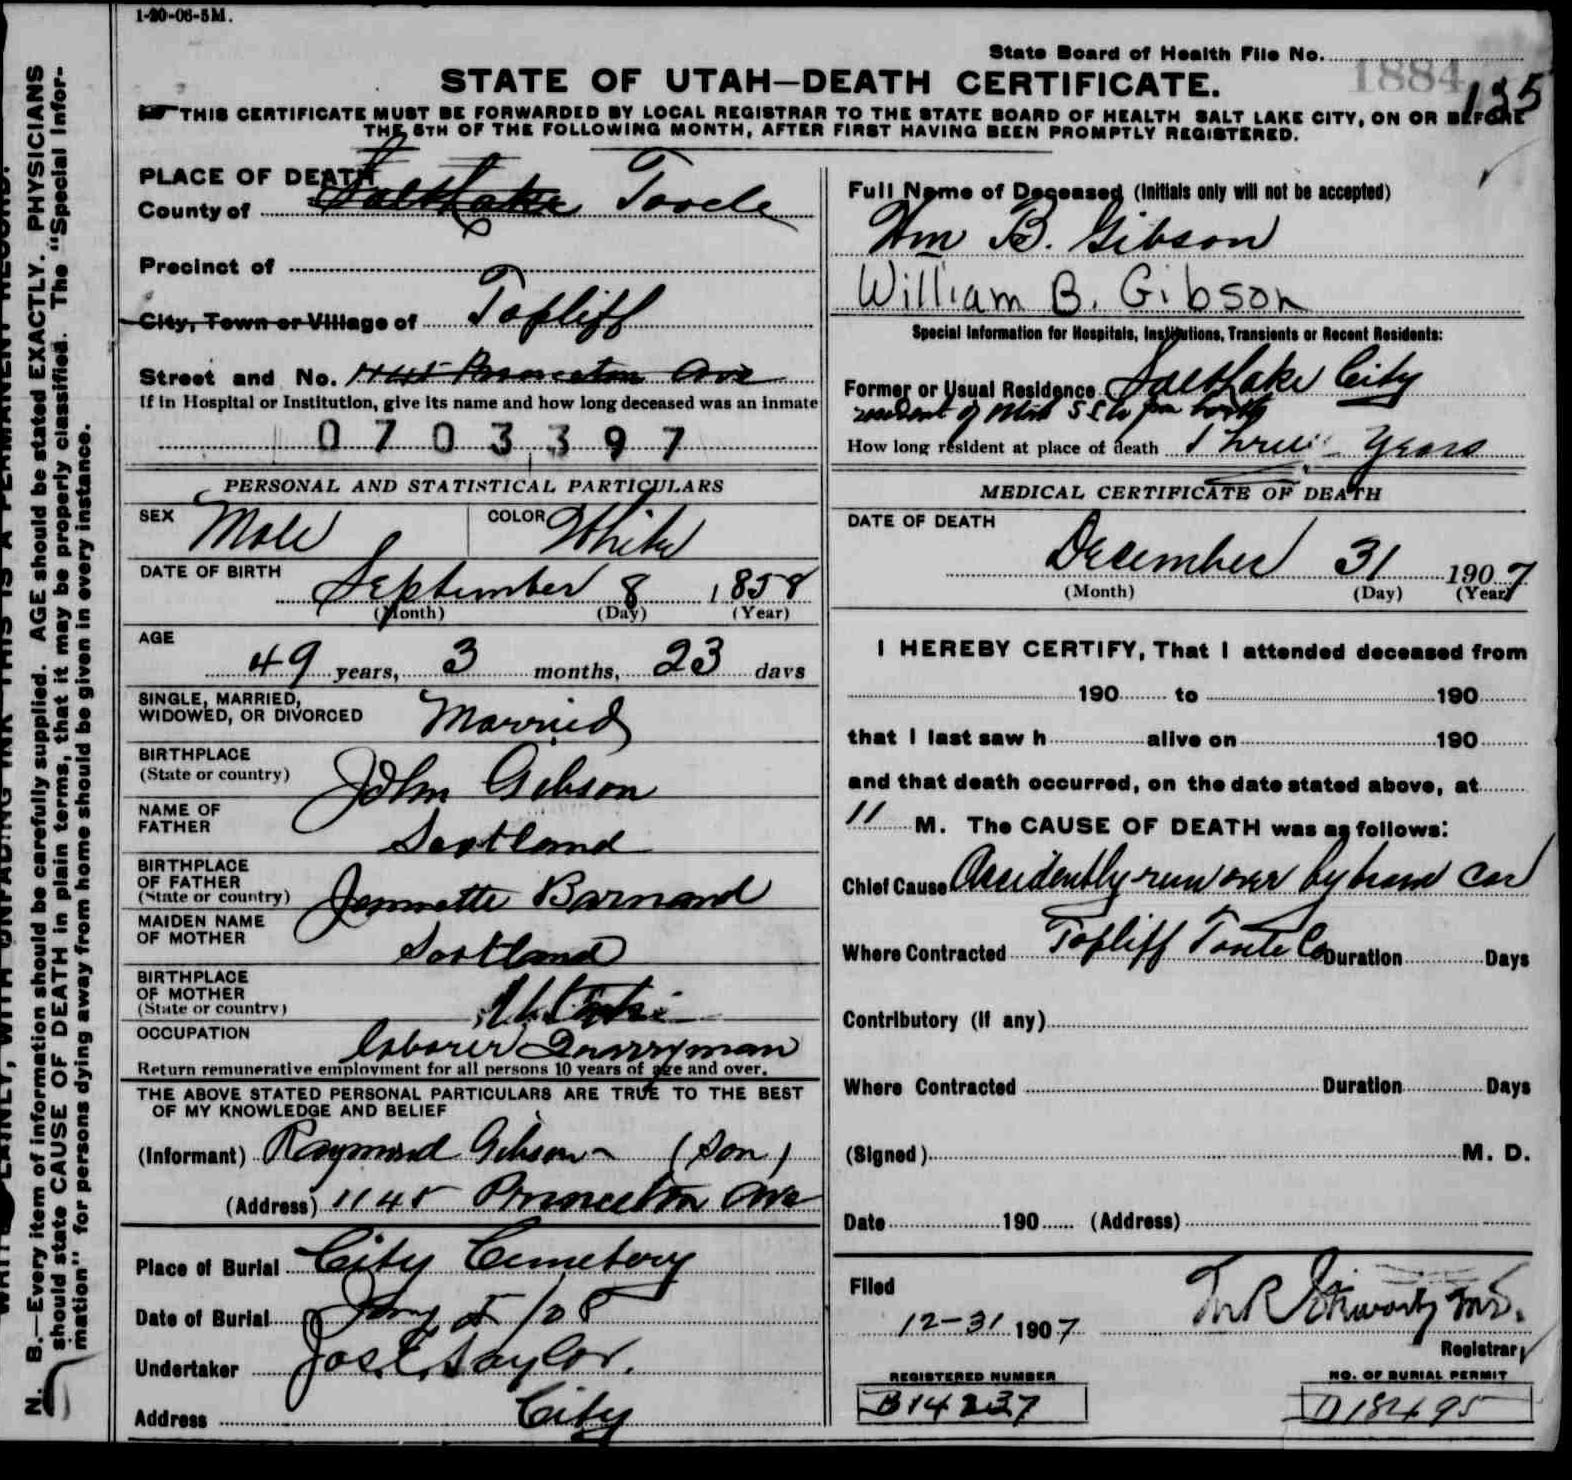 1-20-06-5M.
State Board of Health File No. 1884 135
STATE OF UTAH—DEATH CERTIFICATE.
THIS CERTIFICATE MUST BE FORWARDED BY LOCAL REGISTRAR TO THE STATE BOARD OF HEALTH SALT LAKE CITY, ON OR BEFORE
THE 5TH OF THE FOLLOWING MONTH, AFTER FIRST HAVING BEEN PROMPTLY REGISTERED.
PLACE OF DEATH
County of Salt Lake Tooele
Precinct of
City, Town or Village of Topliff
Street and No. 1145 Princeton Ave
If in Hospital or Institution, give its name and how long deceased was an inmate
0703397
PERSONAL AND STATISTICAL PARTICULARS
SEX Male COLOR White
DATE OF BIRTH September 8 1858
(Month) (Day) (Year)
AGE
49 years, 3 months, 23 days
SINGLE, MARRIED,
WIDOWED, OR DIVORCED Married
BIRTHPLACE
(State or country) John Gibson
NAME OF
FATHER Scotland
BIRTHPLACE
OF FATHER
(State or country) Jennette Barnard
MAIDEN NAME
OF MOTHER Scotland
BIRTHPLACE
OF MOTHER
(State or country)
OCCUPATION laborer Quarryman
Return remunerative employment for all persons 10 years of age and over.
THE ABOVE STATED PERSONAL PARTICULARS ARE TRUE TO THE BEST
OF MY KNOWLEDGE AND BELIEF
(Informant) Raymond Gibson (Son)
(Address) 1145 Princeton Ave
Place of Burial City Cemetery
Date of Burial Jany 5/08
Undertaker Jos. E. Taylor.
Address City
Full Name of Deceased (Initials only will not be accepted)
Wm B. Gibson
William B. Gibson
Special Information for Hospitals, Institutions, Transients or Recent Residents:
Former or Usual Residence Salt Lake City
resident of
How long resident at place of death Three Years
MEDICAL CERTIFICATE OF DEATH
DATE OF DEATH
December 31 1907
(Month) (Day) (Year)
I HEREBY CERTIFY, That I attended deceased from
190 to 190
that I last saw h alive on 190
and that death occurred, on the date stated above, at
11 M. The CAUSE OF DEATH was as follows:
Chief Cause Accidently run over by hand car
Where Contracted Topliff Co Duration Days
Contributory (if any)
Where Contracted Duration Days
(Signed) M. D.
Date 190 (Address)
Filed
12-31 1907
Registrar
REGISTERED NUMBER NO. OF BURIAL PERMIT
B14237 D18495
N. B.—Every item of information should be carefully supplied. AGE should be stated EXACTLY. PHYSICIANS
should state CAUSE OF DEATH in plain terms, that it may be properly classified. The "Special Infor-
mation" for persons dying away from home should be given in every instance.